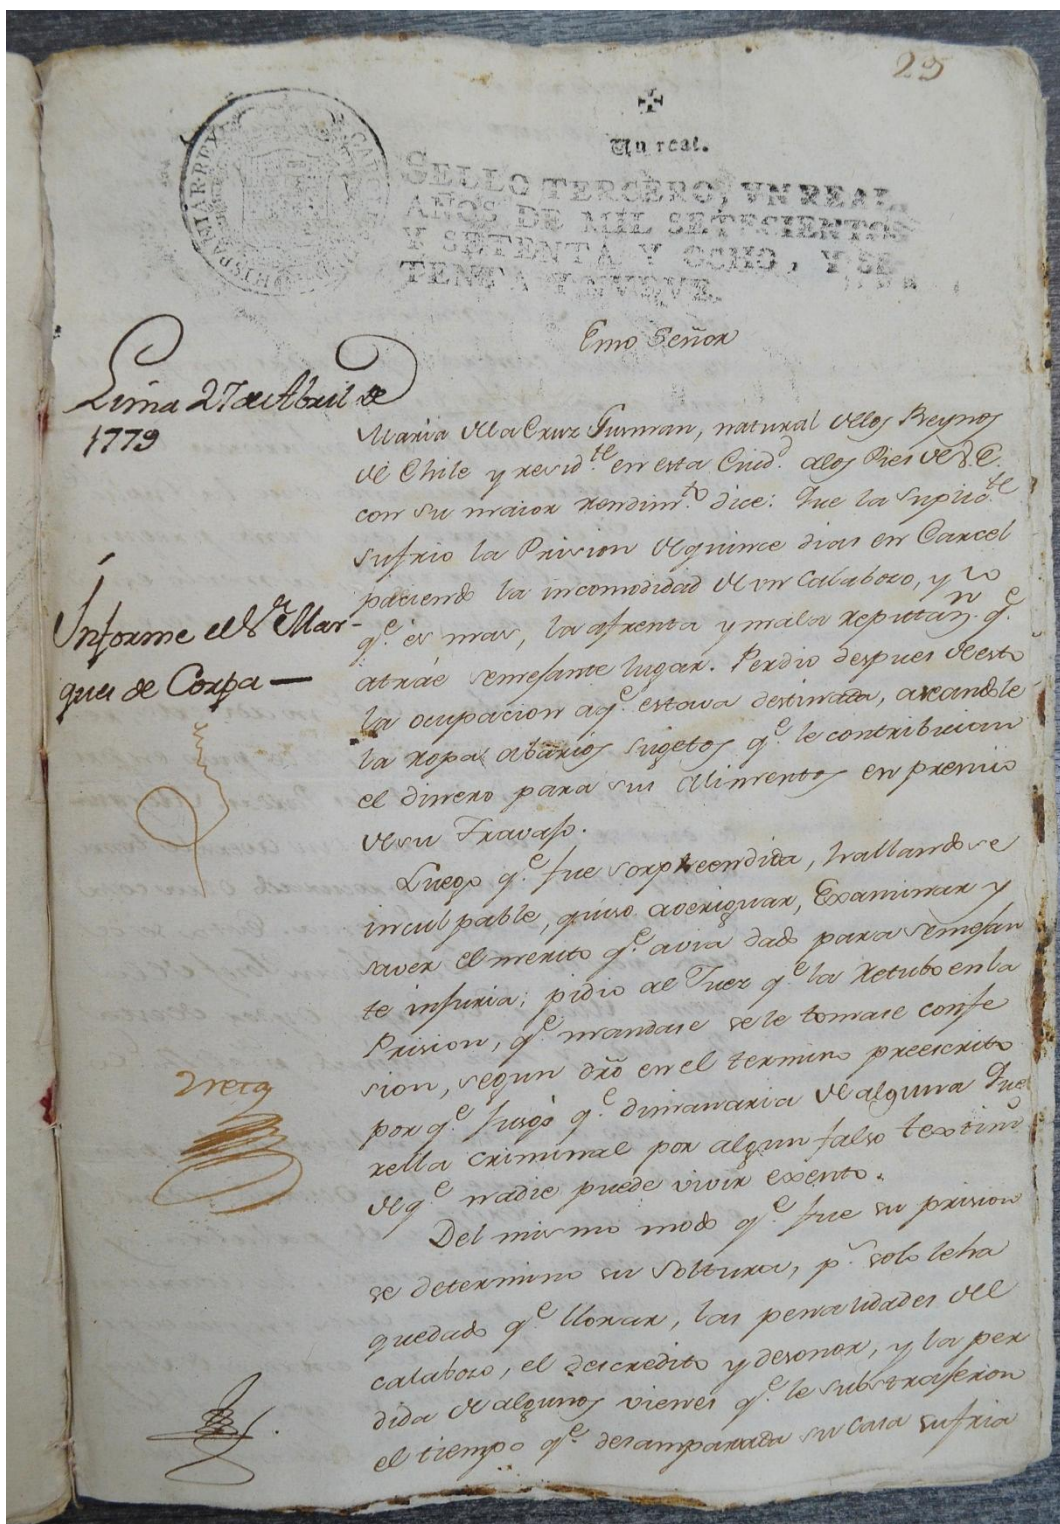 25
Un real.
SELLO TERCERO, VN REAL,
AÑOS DE MIL SETECIENTOS
Y SETENTA Y OCHO, Y SE-
TENTA Y NUEVE.
HISPANIAR REX
Emo Señor
Lima 27 de Abril de
1779
Informe el Sr. Mar-
ques de Corpa
Maria de la Cruz Gusman, natural de los Reynos
de Chile y resid.te en esta Ciud.d a los Pies de V.E.
con su maior rendim.to dice: Que la suplic.te
sufrio la Prision de quince dias en Carcel
paciendo la incomodidad de un calaboso, y lo
q.e es mas, la afrenta y mala reputan.n q.e
atráe semejante lugar. Perdio despues de esto
la ocupacion a q.e estava destinada,
la ropa a barios sugetos q.e le contribuian
el dinero para sus alimentos en premio
de su Travajo.
Luego q.e fue sorpreendida, hallandose
inculpable, quiso averiguar, Examinar y
saver el merito q.e avia dado para semejan
te injuria; pidio al Juez q.e la retubo en la
Prision, q.e mandase se le tomase confe
sion, segun dro en el termino preescrito
por q.e jusgó q.e dimanaria de alguna Que
rella criminal por algun falso textim.o
de q.e nadie puede vivir exento.
Del mismo modo q.e fue su prision
se determino su soltura, p.s solo le ha
quedado q.e llorar, las penalidades del
calaboso, el descredito y desonor, y la per
dida de algunos vienes q.e le substrajeron
el tiempo q.e desamparada su casa sufria